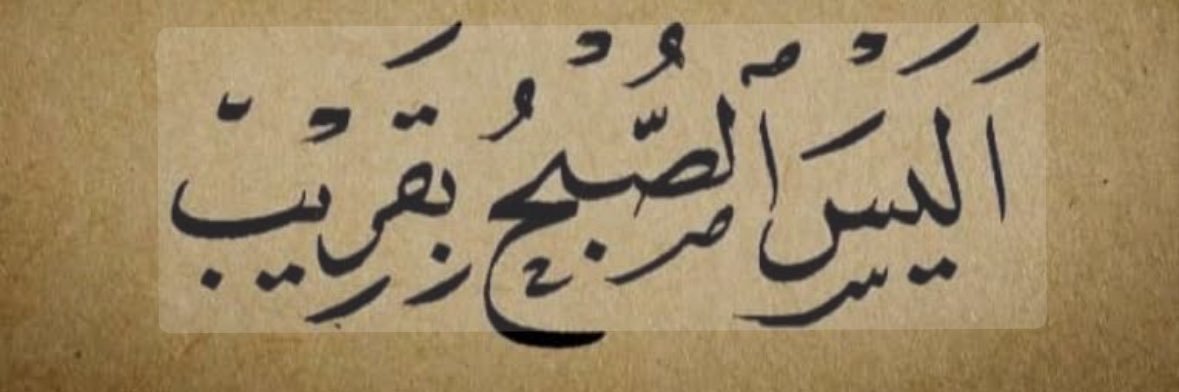 اَلَيْسَ ٱلصُّبْحُ بِقَرِيْبْ